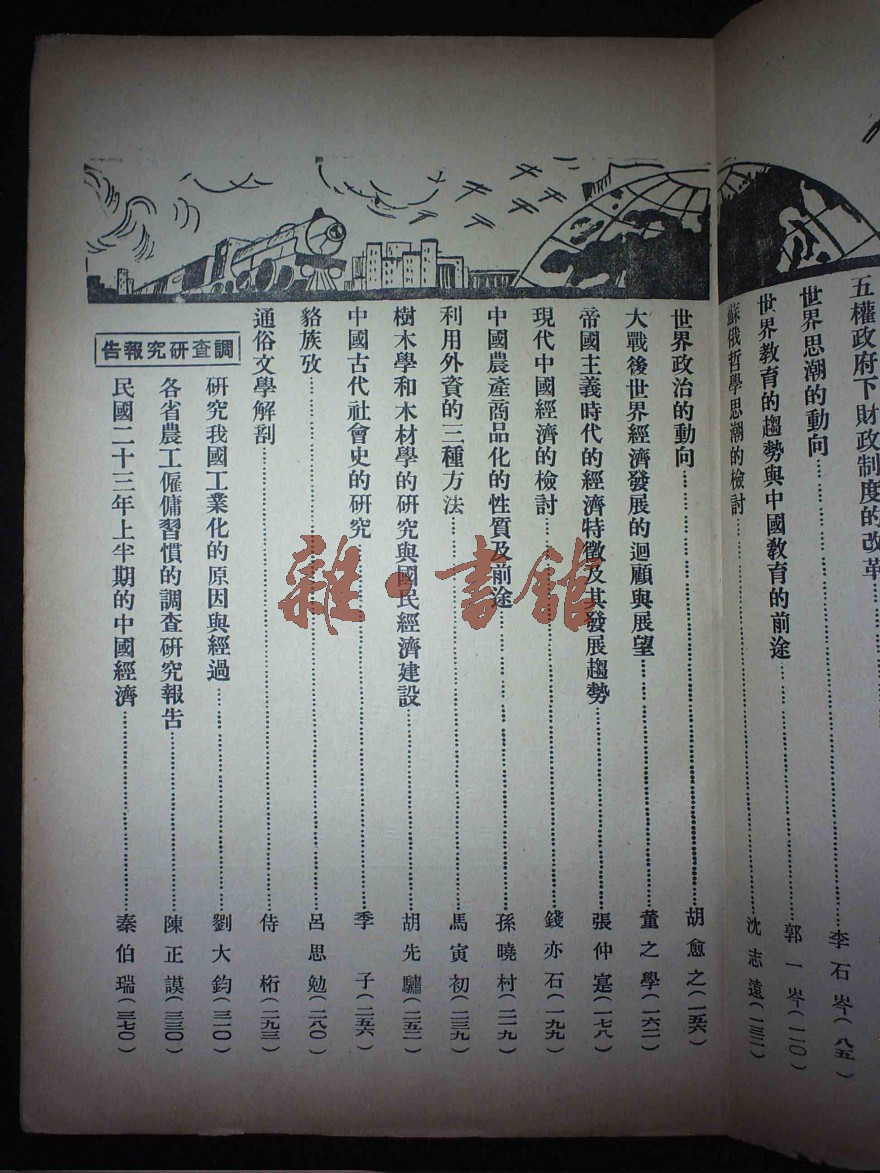 五權政府下財政制度的改革
世界思潮的動向……李石岑(八五)
世界教育的趨勢與中國教育的前途……郭一岑(一一〇)
蘇俄哲學思潮的檢討……沈志遠(一三二)
世界政治的動向……胡愈之(一五六)
大戰後世界經濟發展的迴顧與展望……董之學(一六二)
帝國主義時代的經濟特徵及其發展趨勢……張仲寔(一七八)
現代中國經濟的檢討……錢亦石(一九九)
中國農產商品化的性質及前途……孫曉村(二一九)
利用外資的三種方法……馬寅初(二三九)
樹木學和木材學的研究與國民經濟建設……胡先驌(二五二)
中國古代社會史的研究……季子(二五六)
貉族攷……呂思勉(二八〇)
通俗文學解剖……侍桁(二九三)
調查研究報告
研究我國工業化的原因與經過……劉大鈞(三一〇)
各省農工僱傭習慣的調查研究報告……陳正謨(三三〇)
民國二十三年上半期的中國經濟……秦伯瑞(三七〇)
雜·書館